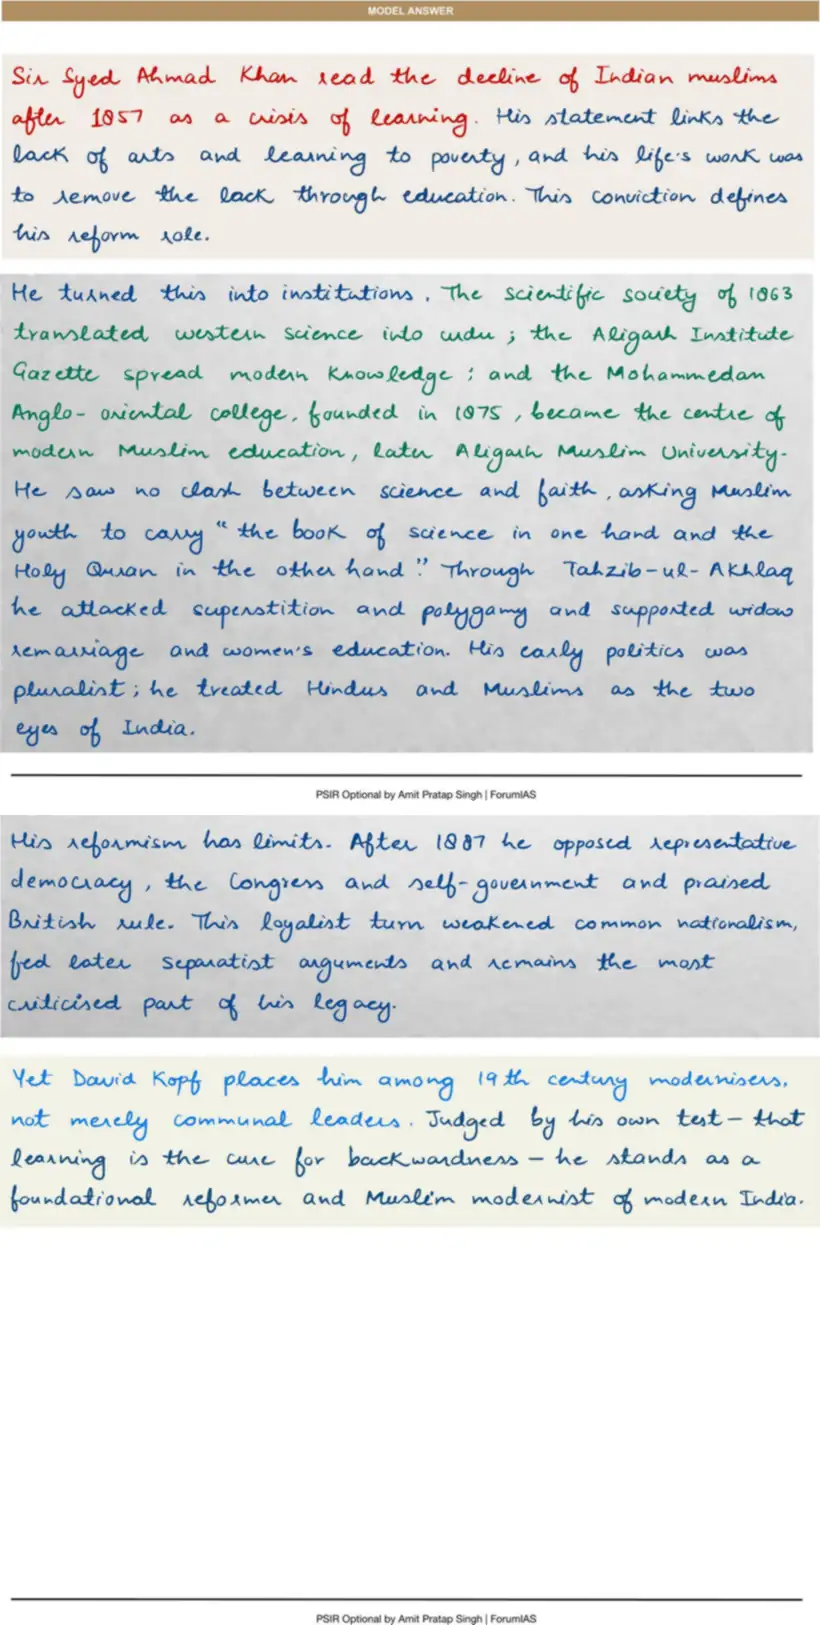 MODEL ANSWER
Sir Syed Ahmad Khan read the decline of Indian muslims
after 1857 as a crisis of learning. His statement links the
lack of arts and learning to poverty, and his life's work was
to remove the lack through education. This conviction defines
his reform role.
He turned this into institutions. The scientific society of 1863
translated western science into urdu ; the Aligarh Institute
Gazette spread modern knowledge ; and the Mohammedan
Anglo-oriental college, founded in 1875, became the centre of
modern Muslim education, later Aligarh Muslim University.
He saw no clash between science and faith, asking Muslim
youth to carry "the book of science in one hand and the
Holy Quran in the other hand." Through Tahzib-ul-Akhlaq
he attacked superstition and polygamy and supported widow
remarriage and women's education. His early politics was
pluralist ; he treated Hindus and Muslims as the two
eyes of India.
PSIR Optional by Amit Pratap Singh | ForumIAS
His reformism has limits. After 1887 he opposed representative
democracy, the Congress and self-government and praised
British rule. This loyalist turn weakened common nationalism,
fed later separatist arguments and remains the most
criticised part of his legacy.
Yet David Kopf places him among 19th century modernisers,
not merely communal leaders. Judged by his own test – that
learning is the cure for backwardness – he stands as a
foundational reformer and Muslim modernist of modern India.
PSIR Optional by Amit Pratap Singh | ForumIAS